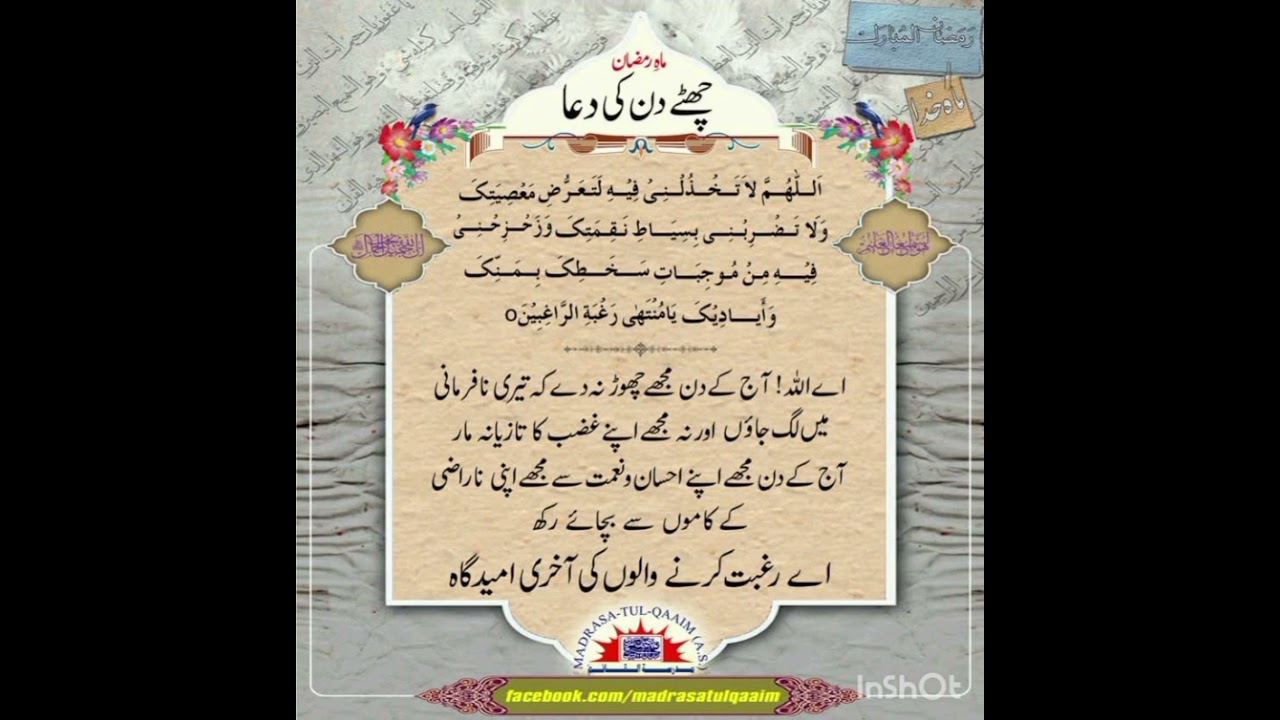 رمضان المبارک
ماہ خدا
ماہِ رمضان
چھٹے دن کی دعا
اَللّٰهُمَّ لاَ تَخْذُلْنِیْ فِیْهِ لَتَعَرُّضِ مَعْصِیَتِکَ
وَلَا تَضْرِبْنِی بِسِیَاطِ نَقِمَتِکَ وَزَحْزِحْنِیْ
فِیْهِ مِنْ مُوجِبَاتِ سَخَطِکَ بِمَنِّکَ
وَأَیَادِیْکَ یَامُنْتَهٰی رَغْبَةِ الرَّاغِبِیْنَo
اے اللہ! آج کے دن مجھے چھوڑ نہ دے کہ تیری نافرمانی
میں لگ جاؤں اور نہ مجھے اپنے غضب کا تازیانہ مار
آج کے دن مجھے اپنے احسان و نعمت سے مجھے اپنی ناراضی
کے کاموں سے بچائے رکھ
اے رغبت کرنے والوں کی آخری امیدگاہ
MADRASA-TUL-QAAIM (A.S.)
مدرسۃ القائم
facebook.com/madrasatulqaaim
InShOt